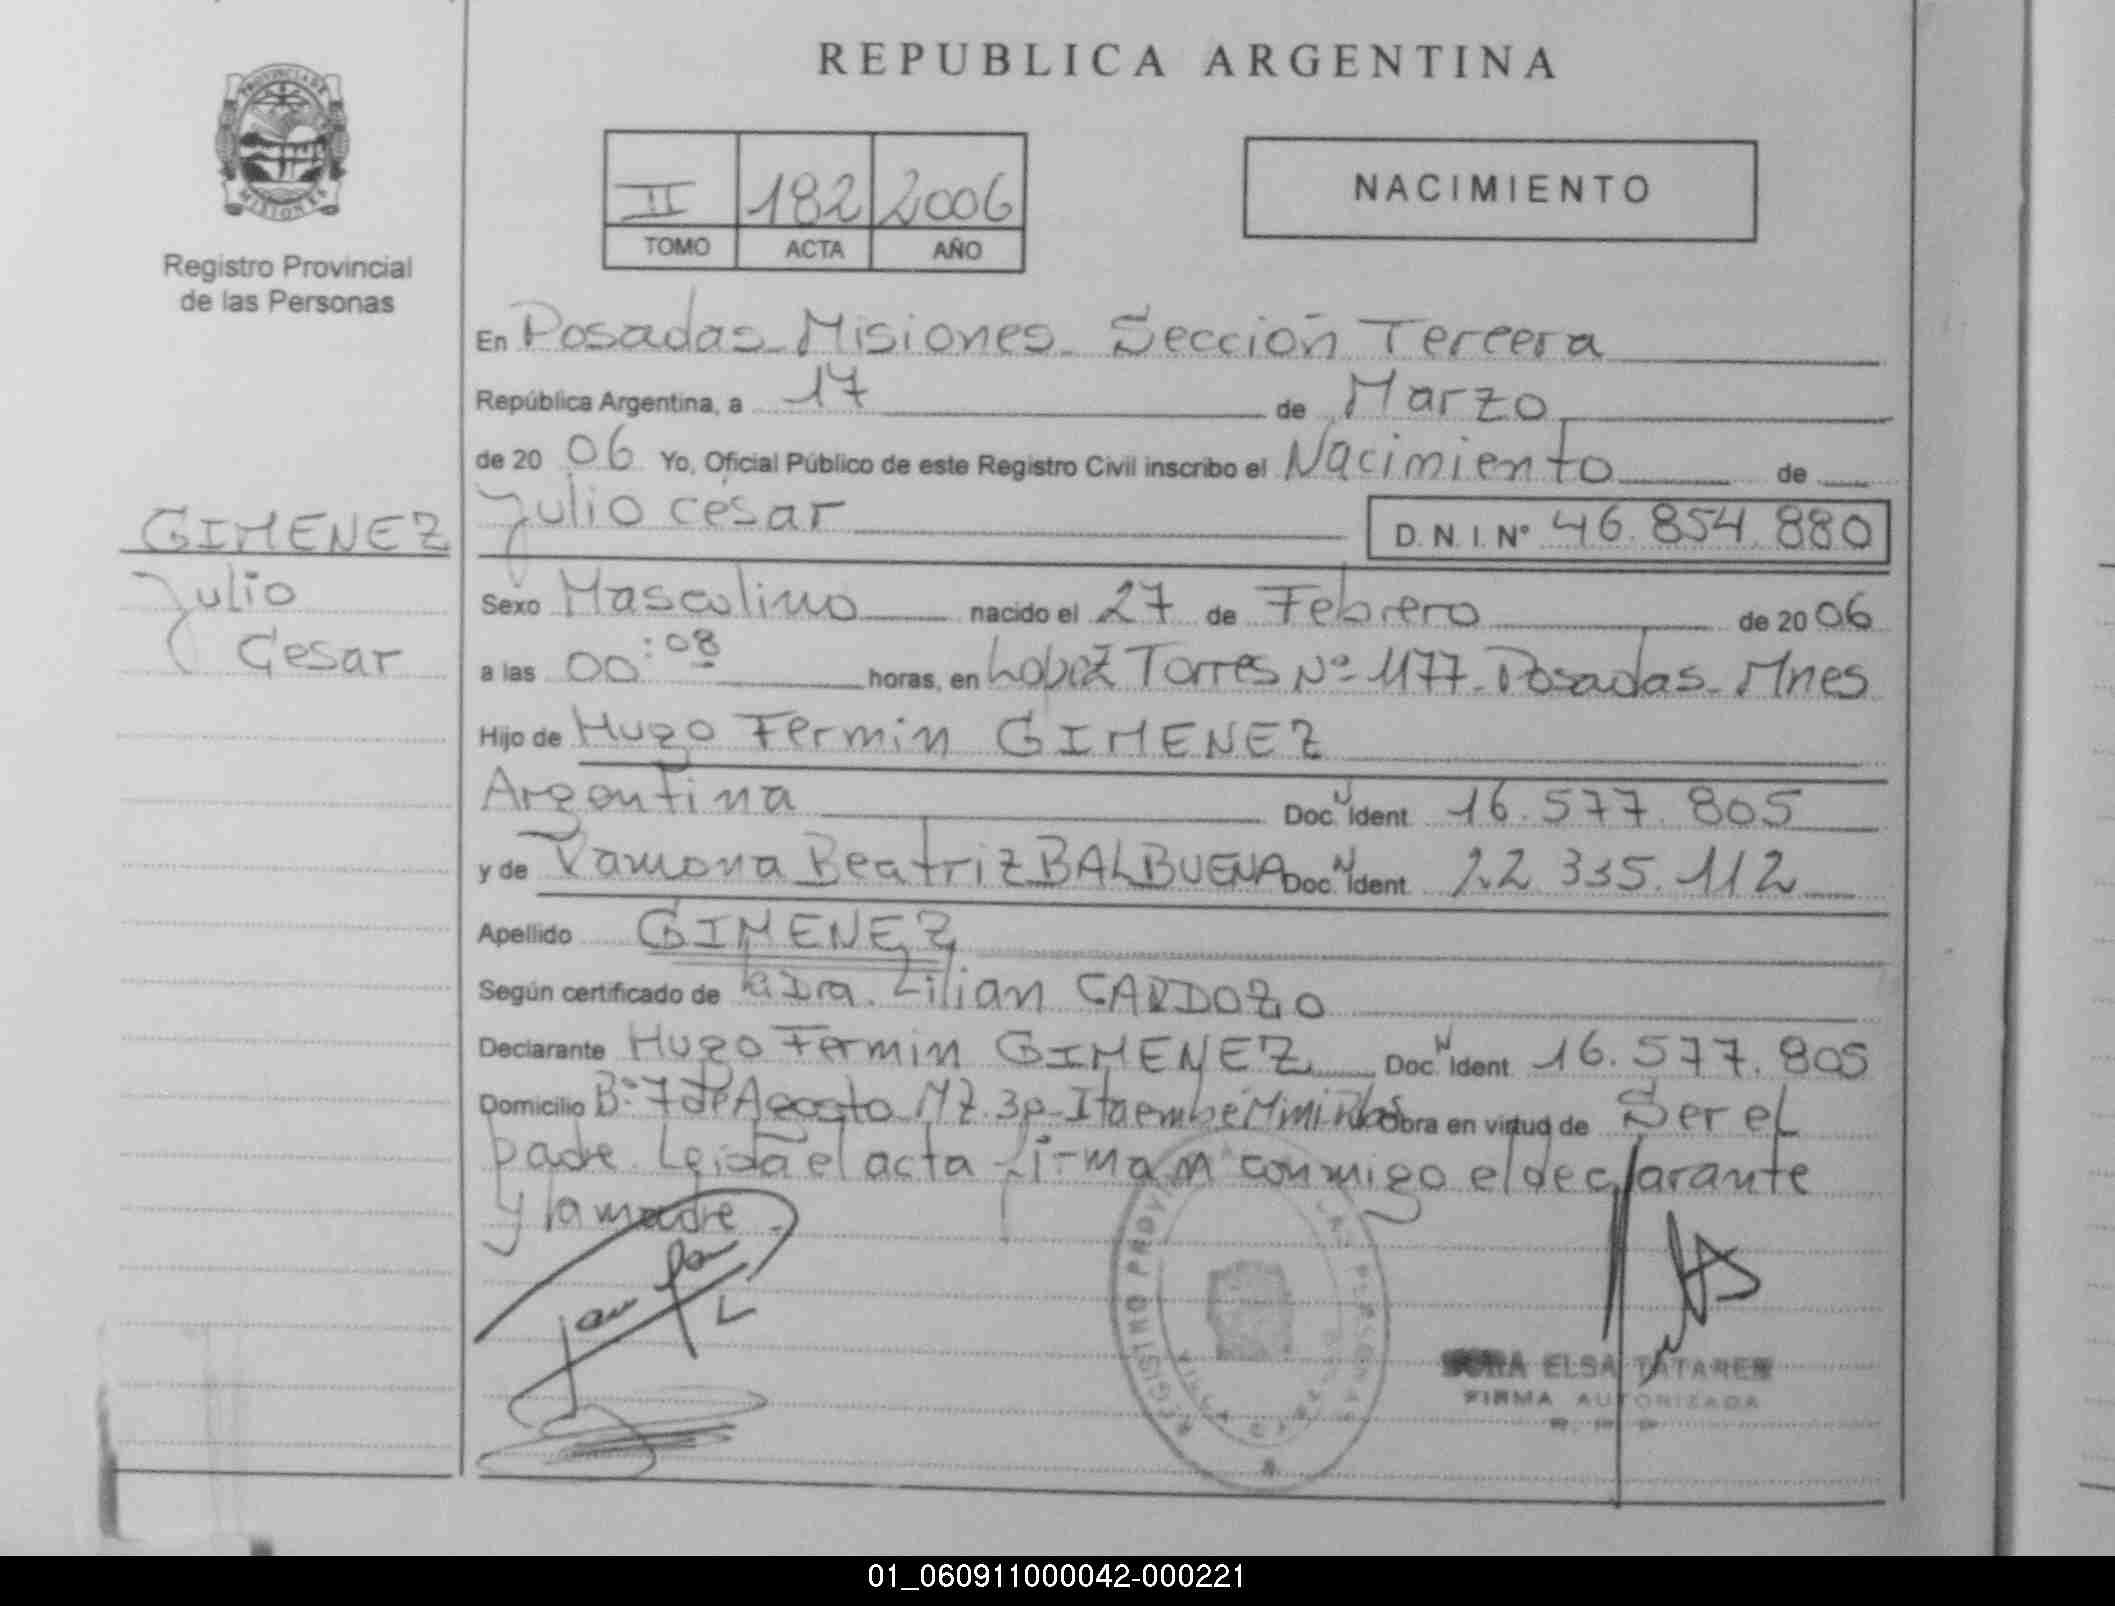 REPUBLICA ARGENTINA
PROVINCIA DE
MISIONES
Registro Provincial
de las Personas
II 182 2006
TOMO ACTA AÑO
NACIMIENTO
En Posadas - Misiones - Sección Tercera
República Argentina, a 17 de Marzo
de 20 06 Yo, Oficial Público de este Registro Civil inscribo el Nacimiento de
Julio cesar D. N. I. Nº 46.854.880
GIMENEZ
Julio
Cesar
Sexo Masculino nacido el 27 de Febrero de 20 06
a las 00:08 horas, en Lopez Torres Nº 1177 - Posadas - Mnes
Hijo de Hugo Fermin GIMENEZ
Argentina Doc. N Ident 16.577.805
y de Ramona Beatriz BALBUENA Doc. N Ident 22.335.112
Apellido GIMENEZ
Según certificado de la Dra. Lilian CARDOZO
Declarante Hugo Fermin GIMENEZ Doc. N Ident 16.577.805
Domicilio Bº 7 de Agosto Mz. 38 - Itaembé Mini Obra en virtud de Ser el
padre. Leída el acta firman conmigo el declarante
y la madre.
REGISTRO PROV LAS PERSONAS
ELSA
FIRMA AUTORIZADA
01_060911000042-000221